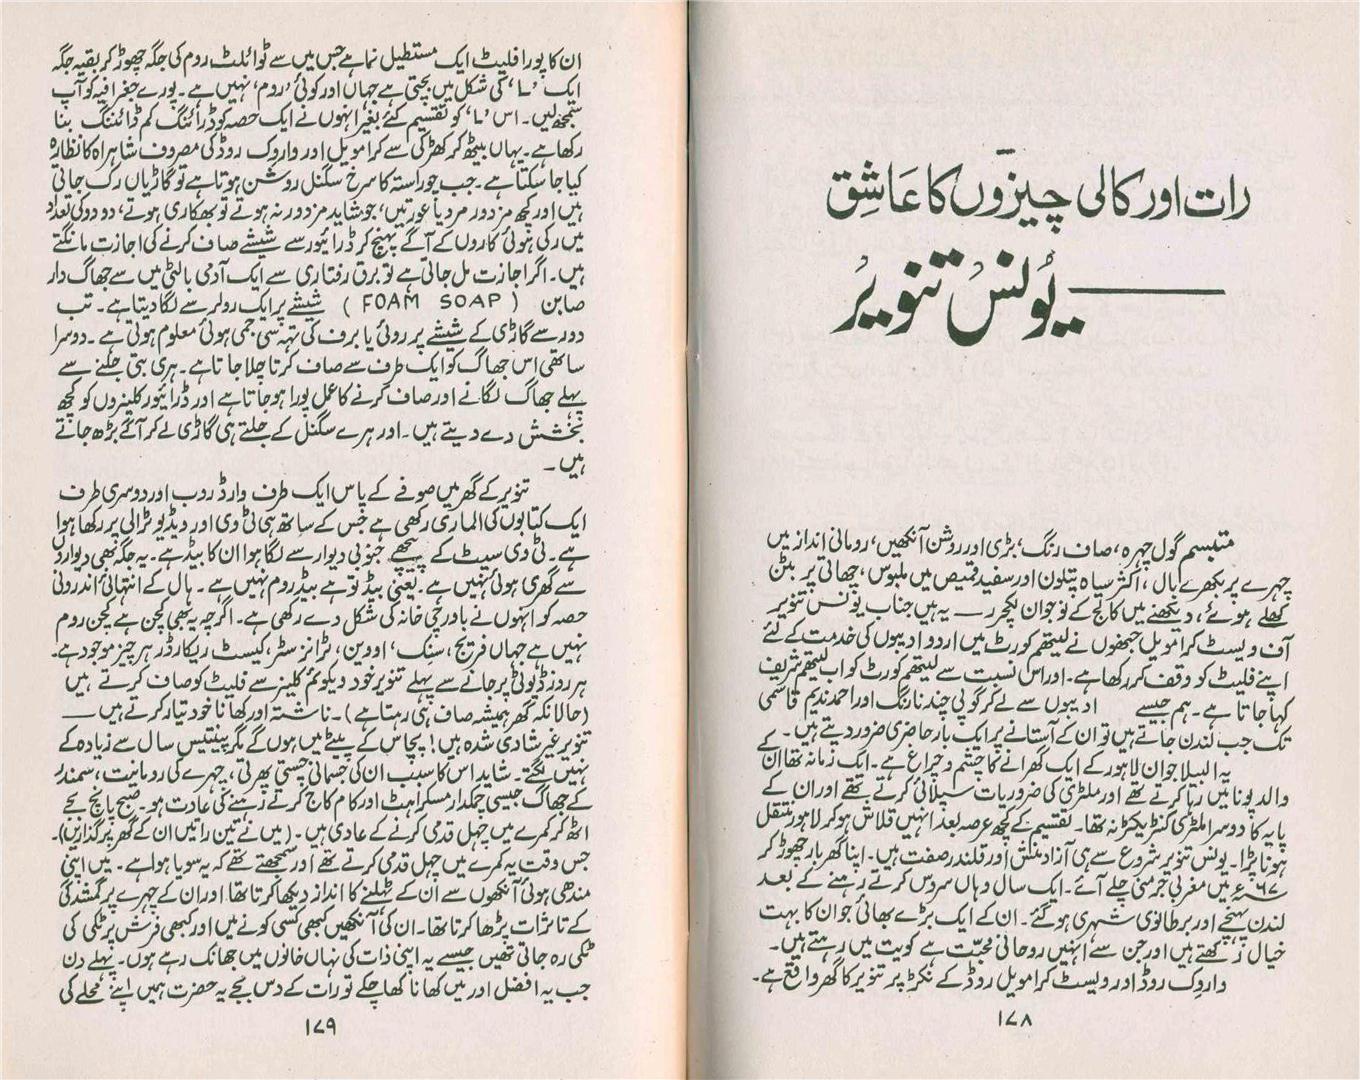 رات اور کالی چیزوں کا عاشق
یونس تنویر
متبسم گول چہرہ، صاف رنگ، بڑی اور روشن آنکھیں، رومانی انداز میں
چہرے پر بکھرے بال، اکثر سیاہ پتلون اور سفید قمیص میں ملبوس، چھاتی پر بٹن
کھلے ہوئے، دیکھنے میں کالج کے نوجوان لکچرر — یہ ہیں جناب یونس تنویر
آف ویسٹ کرامویل جنھوں نے لیتھم کورٹ میں اردو ادیبوں کی خدمت کے لئے
اپنے فلیٹ کو وقف کر رکھا ہے۔ اور اس نسبت سے لیتھم کورٹ کو اب لیتھم شریف
کہا جاتا ہے۔ ہم جیسے ادیبوں سے لے کر گوپی چند نارنگ اور احمد ندیم قاسمی
تک جب لندن جاتے ہیں تو ان کے آستانے پر ایک بار حاضری ضرور دیتے ہیں۔
یہ البیلا جوان لاہور کے ایک گھرانے کا چشم و چراغ ہے۔ ایک زمانہ تھا ان کے
والد پونا میں رہا کرتے تھے اور ملٹری کی ضروریات سپلائی کرتے تھے اور ان کے
پایہ کا دوسرا ملٹری کنٹریکٹر نہ تھا۔ تقسیم کے کچھ عرصہ بعد انہیں قلاش ہو کر لاہور منتقل
ہونا پڑا۔ یونس تنویر شروع سے ہی آزاد منش اور قلندر صفت ہیں۔ اپنا گھر بار چھوڑ کر
۶۷ء میں مغربی جرمنی چلے آئے۔ ایک سال وہاں سروس کرتے رہنے کے بعد
لندن پہنچے اور برطانوی شہری ہو گئے۔ ان کے ایک بڑے بھائی جو ان کا بہت
خیال رکھتے ہیں اور جن سے انہیں روحانی محبت ہے کویت میں رہتے ہیں۔
واروک روڈ اور ویسٹ کرامویل روڈ کے نکڑ پر تنویر کا گھر واقع ہے۔
۱۷۸
ان کا پورا فلیٹ ایک مستطیل نما ہے جس میں سے ٹوائلٹ روم کی جگہ چھوڑ کر بقیہ جگہ
ایک 'L' کی شکل میں بچتی ہے جہاں اور کوئی 'روم' نہیں ہے۔ پورے جغرافیہ کو آپ
سمجھ لیں۔ اس 'L' کو تقسیم کئے بغیر انہوں نے ایک حصہ کو ڈرائنگ کم ڈائننگ بنا
رکھا ہے۔ یہاں بیٹھ کر کھڑکی سے کرامویل اور واروک روڈ کی مصروف شاہراہ کا نظارہ
کیا جا سکتا ہے۔ جب چوراستہ کا سرخ سگنل روشن ہوتا ہے تو گاڑیاں رک جاتی
ہیں اور کچھ مزدور مرد یا عورتیں، جو شاید مزدور نہ ہوتے تو بھکاری ہوتے، دو دو کی تعداد
میں رکی ہوئی کاروں کے آگے پہنچ کر ڈرائیور سے شیشے صاف کرنے کی اجازت مانگتے
ہیں۔ اگر اجازت مل جاتی ہے تو برق رفتاری سے ایک آدمی بالٹی میں سے جھاگ دار
صابن (FOAM SOAP) شیشے پر ایک رولر سے لگا دیتا ہے۔ تب
دور سے گاڑی کے شیشے پر روئی یا برف کی تہہ سی جمی ہوئی معلوم ہوتی ہے۔ دوسرا
ساتھی اس جھاگ کو ایک طرف سے صاف کرتا چلا جاتا ہے۔ ہری بتی جلنے سے
پہلے جھاگ لگانے اور صاف کرنے کا عمل پورا ہو جاتا ہے اور ڈرائیور کلینروں کو کچھ
بخشش دے دیتے ہیں۔ اور ہرے سگنل کے جلتے ہی گاڑی لے کر آگے بڑھ جاتے
ہیں۔
تنویر کے گھر میں صوفے کے پاس ایک طرف وارڈ روب اور دوسری طرف
ایک کتابوں کی الماری رکھی ہے جس کے ساتھ ہی ٹی وی اور ویڈیو ٹرالی پر رکھا ہوا
ہے۔ ٹی وی سیٹ کے پیچھے جنوبی دیوار سے لگا ہوا ان کا بیڈ ہے۔ یہ جگہ بھی دیواروں
سے گھری ہوئی نہیں ہے یعنی بیڈ تو ہے بیڈ روم نہیں ہے۔ ہال کے انتہائی اندرونی
حصہ کو انہوں نے باورچی خانہ کی شکل دے رکھی ہے۔ اگرچہ یہ بھی کچن ہے کچن روم
نہیں ہے جہاں فریج، سنک، اوون، ٹرانزسٹر، کیسٹ ریکارڈر ہر چیز موجود ہے۔
ہر روز ڈیوٹی پر جانے سے پہلے تنویر خود ویکوئم کلینر سے فلیٹ کو صاف کرتے ہیں
(حالانکہ گھر ہمیشہ صاف ہی رہتا ہے)۔ ناشتہ اور کھانا خود تیار کرتے ہیں —
تنویر غیر شادی شدہ ہیں! پچاس کے پیٹے میں ہوں گے مگر پینتیس سال سے زیادہ کے
نہیں لگتے۔ شاید اس کا سبب ان کی جسمانی چستی پھرتی، چہرے کی رومانیت، سمندر
کے جھاگ جیسی چمکدار مسکراہٹ اور کام کاج کرتے رہنے کی عادت ہو۔ صبح پانچ بجے
اٹھ کر کمرے میں چہل قدمی کرنے کے عادی ہیں۔ (میں نے تین راتیں ان کے گھر پر گذاریں)۔
جس وقت یہ کمرے میں چہل قدمی کرتے تھے اور سمجھتے تھے کہ یہ سویا ہوا ہے۔ میں اپنی
مندھی ہوئی آنکھوں سے ان کے ٹہلنے کا انداز دیکھا کرتا تھا اور ان کے چہرے پر گمشدگی
کے تاثرات پڑھا کرتا تھا۔ ان کی آنکھیں کبھی کسی کونے میں اور کبھی فرش پر ٹکی کی
ٹکی رہ جاتی تھیں جیسے یہ اپنی ذات کی نہاں خانوں میں جھانک رہے ہوں۔ پہلے دن
جب یہ افضل اور میں کھانا کھا چکے تو رات کے دس بجے یہ حضرت ہمیں اپنے محلے کی
۱۷۹